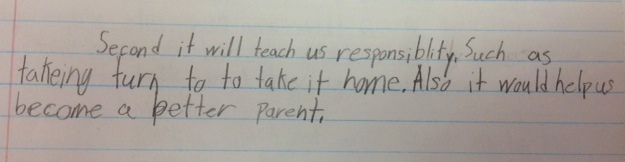 Second it will teach us responsiblity. Such as
takeing turn to to take it home. Also it would help us
become a better parent.